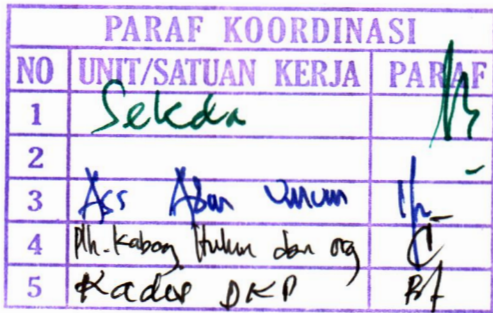 PARAF KOORDINASI
NO UNIT/SATUAN KERJA PARAF
1 Sekda
2
3 Ass Adm Umum
4 Plh. Kabag Hukum dan org
5 Kadis DKP